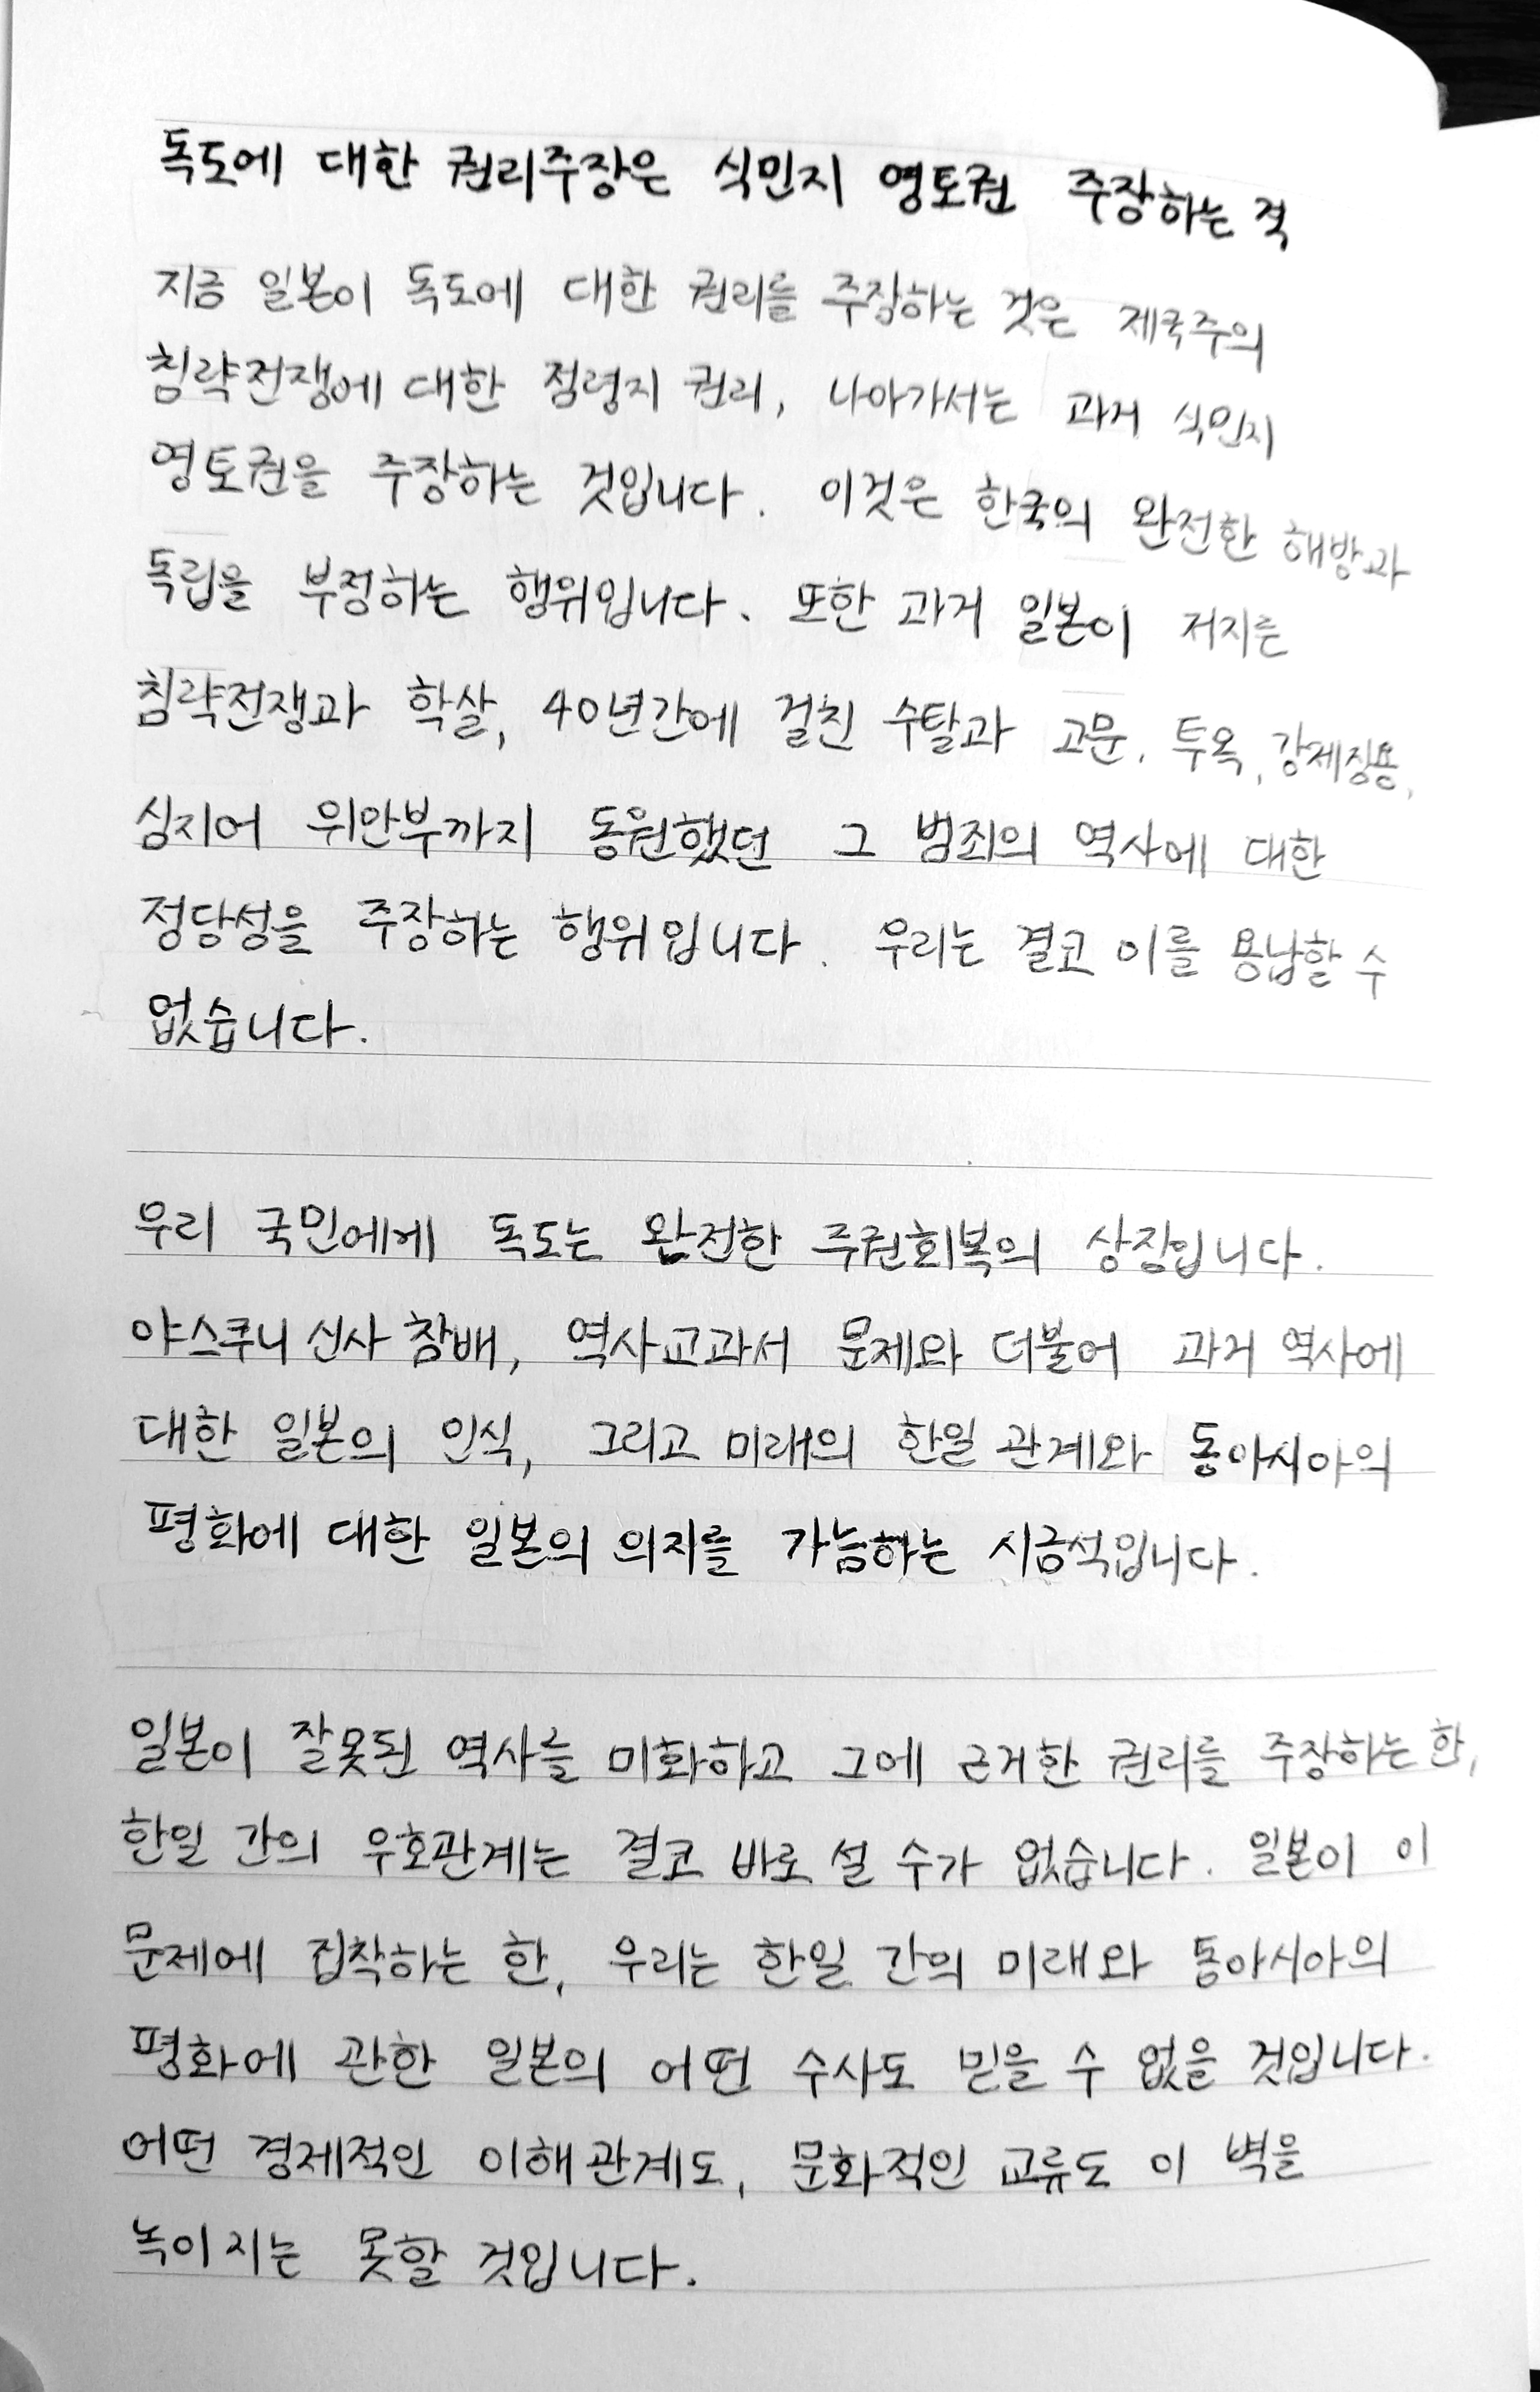 독도에 대한 권리주장은 식민지 영토권 주장하는 격
지금 일본이 독도에 대한 권리를 주장하는 것은 제국주의
침략전쟁에 대한 점령지 권리, 나아가서는 과거 식민지
영토권을 주장하는 것입니다. 이것은 한국의 완전한 해방과
독립을 부정하는 행위입니다. 또한 과거 일본이 저지른
침략전쟁과 학살, 40년간에 걸친 수탈과 고문, 투옥, 강제징용,
심지어 위안부까지 동원했던 그 범죄의 역사에 대한
정당성을 주장하는 행위입니다. 우리는 결코 이를 용납할 수
없습니다.
우리 국민에게 독도는 완전한 주권회복의 상징입니다.
야스쿠니 신사 참배, 역사교과서 문제와 더불어 과거 역사에
대한 일본의 인식, 그리고 미래의 한일 관계와 동아시아의
평화에 대한 일본의 의지를 가늠하는 시금석입니다.
일본이 잘못된 역사를 미화하고 그에 근거한 권리를 주장하는 한,
한일 간의 우호관계는 결코 바로 설 수가 없습니다. 일본이 이
문제에 집착하는 한, 우리는 한일 간의 미래와 동아시아의
평화에 관한 일본의 어떤 수사도 믿을 수 없을 것입니다.
어떤 경제적인 이해관계도, 문화적인 교류도 이 벽을
녹이지는 못할 것입니다.